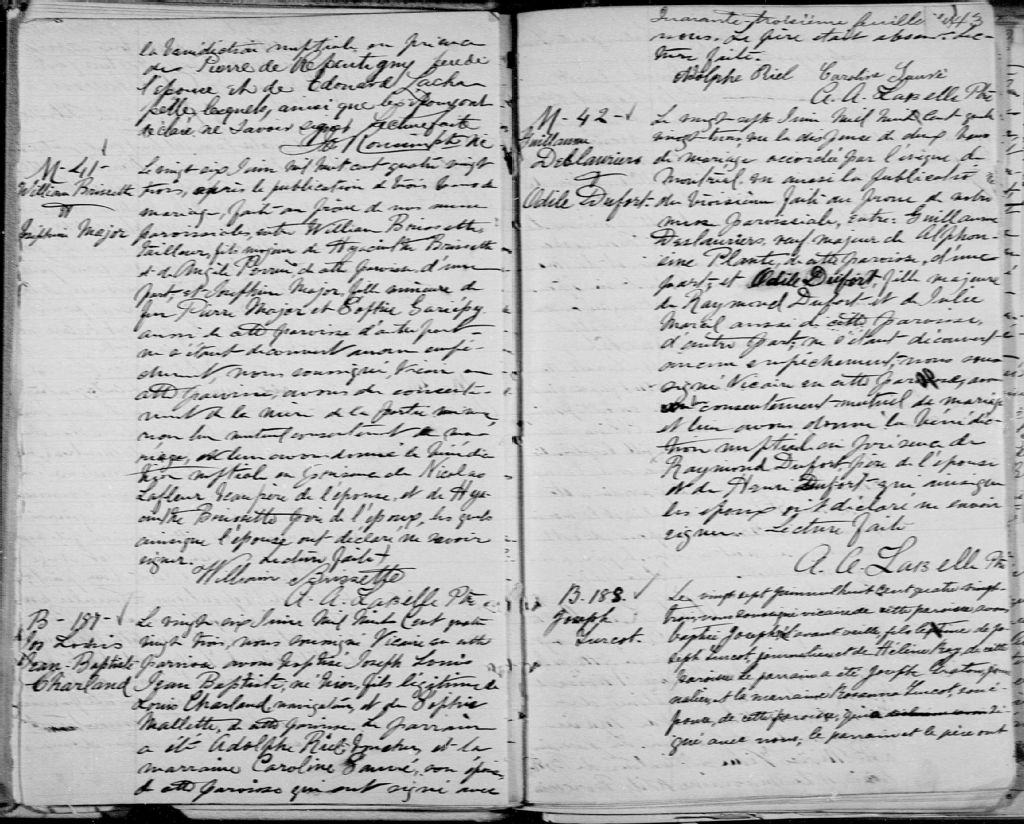 la bénédiction nuptiale en présence
de Pierre de Repentigny père de
l'épouse et de Edouard Lacha
pelle lesquels, ainsi que les époux ont
déclaré ne savoir signer Lecture faite
M-41-
William Brissette
&
Josephine Major
Le vingt six Juin mil huit cent quatre vingt
trois, après la publication de trois bans de
mariage, faite au prône de nos messes
paroissiales, entre William Brissette,
tailleur, fils majeur de Hyacinthe Brissette
et de Angèle Perrin de cette paroisse, d'une
part, et Josephine Major, fille mineure de
feu Pierre Major et Sophie Gariépy
aussi de cette paroisse d'autre part
ne s'étant découvert aucun empê-
chement, nous soussigné, Vicaire en
cette paroisse, avons du consente-
ment de la mère de la partie mineure
reçu leur mutuel consentement de ma-
riage, et leur avons donné la bénédic
tion nuptiale en présence de Nicolas
Lafleur beau père de l'épouse, et de Hya-
cinthe Brissette père de l'époux, lesquels
ainsi que l'épouse ont déclaré ne savoir
signer. Lecture faite
William Brissette
A. A. Labelle Ptre
B-187-
Jos Louis
Jean-Baptiste
Charland
Le vingt six Juin Mil huit cent quatre
vingt trois, nous soussigné Vicaire en cette
paroisse avons baptisé Joseph Louis
Jean Baptiste, né hier, fils légitime de
Louis Charland navigateur, et de Sophie
Mallette, de cette paroisse. Le parrain
a été Adolphe Riel, et la
marraine Caroline Sauvé, son épouse
de cette paroisse qui ont signé avec
Quarante troisième feuille 43
nous. Le père était absent. Lec-
ture faite.
Adolphe Riel Caroline Sauvé
A. A. Labelle Ptre
M-42-
Guillaume
Deslauriers
&
Odile Dufort
Le vingt sept Juin Mil huit Cent quatre
vingt trois, vu la dispense de deux bans
de mariage accordée par l'évêque de
Montréal vu aussi la publication
du troisième faite au prône de notre
messe paroissiale, entre Guillaume
Deslauriers, veuf majeur de Alphon-
sine Plante, de cette paroisse, d'une
part, et Odile Dufort, fille majeure
de Raymond Dufort et de Julie
Marcil aussi de cette paroisse,
d'autre part, ne s'étant découvert
aucun empêchement, nous sous
signé Vicaire en cette paroisse, avons
consentement mutuel de mariage
et leur avons donné la bénédic-
tion nuptiale en présence de
Raymond Dufort père de l'épouse
et de Henri Dufort qui ainsi que
les époux ont déclaré ne savoir
signer. Lecture faite
A. A. Labelle Ptre
B. 188.
Joseph
Turcot.
Le vingt sept juin mil huit cent quatre vingt
trois, nous soussigné vicaire de cette paroisse avons
baptisé Joseph né avant veille, fils légitime de Jo-
seph Turcot, journalier, et de Hélène Roy, de cette
paroisse. Le parrain a été Joseph, jour
nalier, et la marraine Rosanna Turcot, son é-
pouse, de cette paroisse, qui a si
gné avec nous, le parrain et le père ont